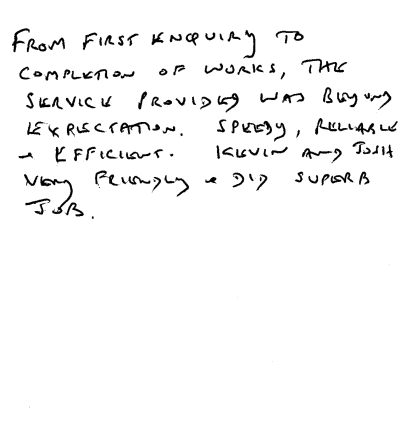 FROM FIRST ENQUIRY TO
COMPLETION OF WORKS, THE
SERVICE PROVIDED WAS BEYOND
EXPECTATION. SPEEDY, RELIABLE
& EFFICIENT. KEVIN AND JOSH
VERY FRIENDLY & DID SUPERB
JOB.